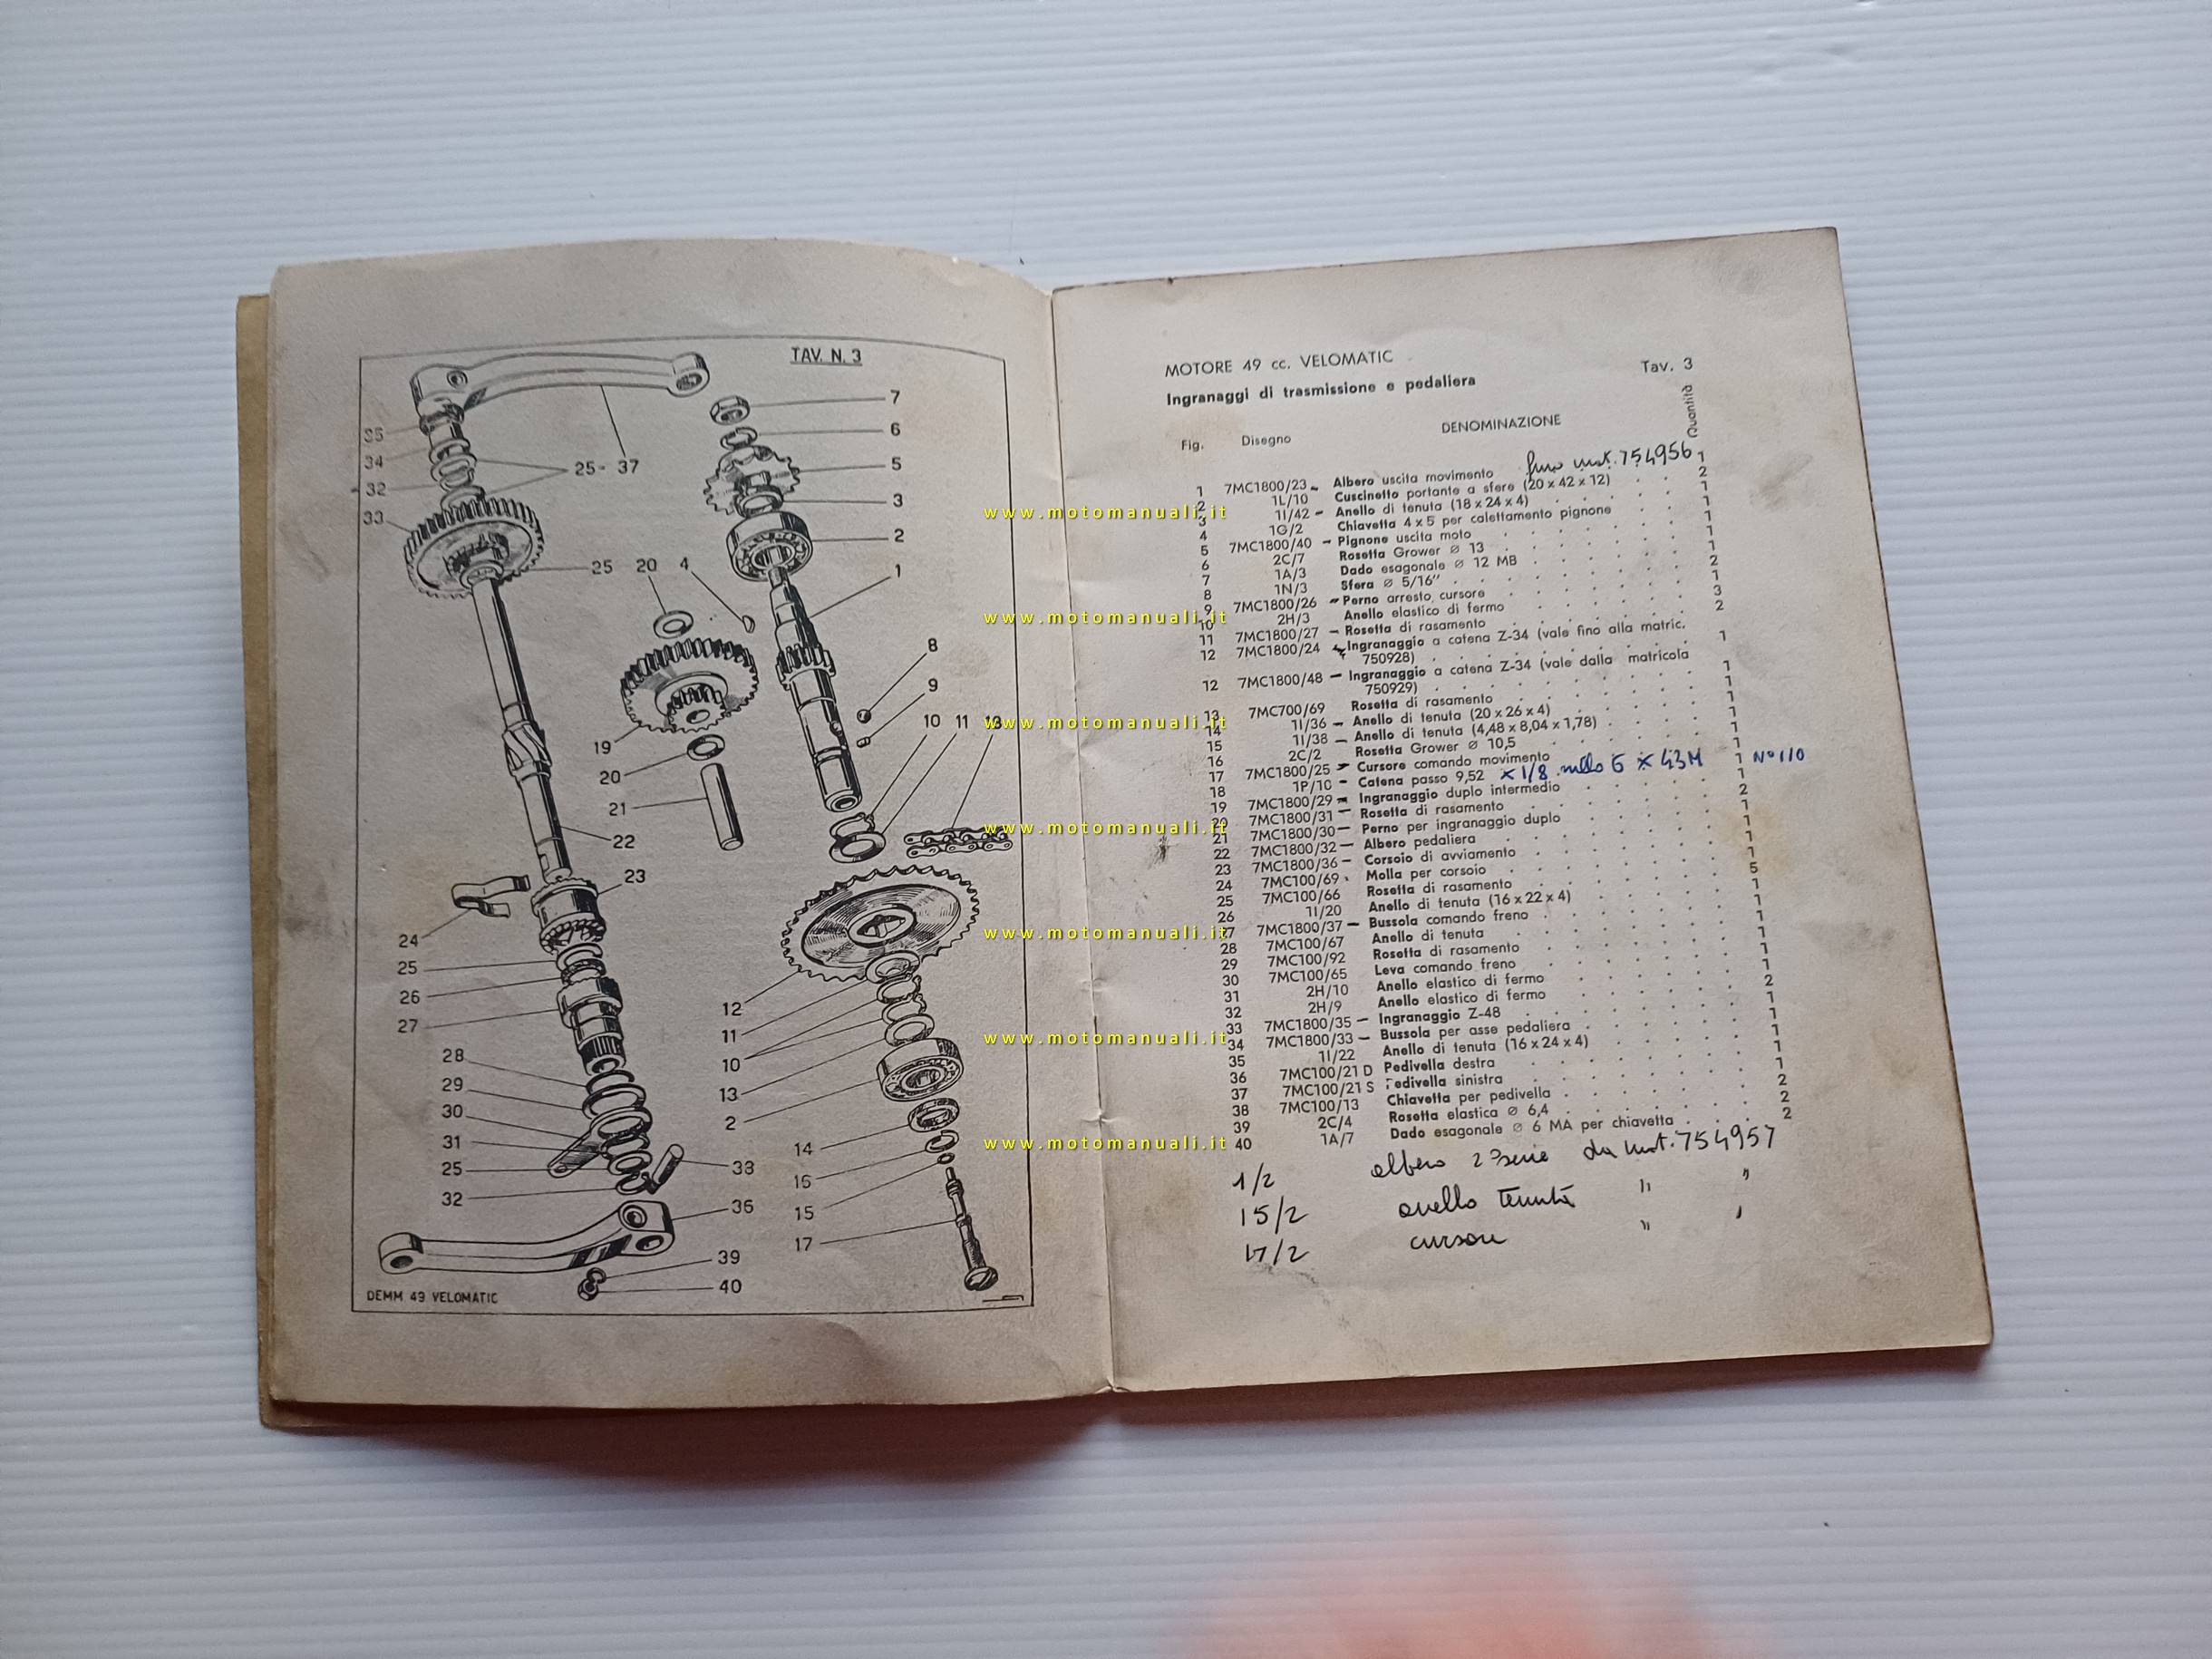 TAV. N. 3
7
6
5
3
2
1
35
34
32
33
25- 37
25
20
4
8
9
10
11
19
20
21
22
23
24
25
26
27
12
11
10
13
2
28
29
30
31
25
32
14
16
15
17
33
36
39
40
DEMM 49 VELOMATIC
MOTORE 49 cc. VELOMATIC
Tav. 3
Ingranaggi di trasmissione e pedaliera
Fig. Disegno DENOMINAZIONE Quantità
1 7MC1800/23 Albero uscita movimento fino mat. 754956 1
2 1L/10 Cuscinetto portante a sfere (20 x 42 x 12) 2
3 1I/42 Anello di tenuta (18 x 24 x 4) 1
4 1G/2 Chiavetta 4 x 5 per calettamento pignone 1
5 7MC1800/40 Pignone uscita moto 1
6 2C/7 Rosetta Grower ø 13 1
7 1A/3 Dado esagonale ø 12 MB 1
8 1N/3 Sfera ø 5/16" 2
9 7MC1800/26 Perno arresto cursore 1
10 2H/3 Anello elastico di fermo 3
11 7MC1800/27 Rosetta di rasamento 2
12 7MC1800/24 Ingranaggio a catena Z-34 (vale fino alla matric.
750928) 1
12 7MC1800/48 Ingranaggio a catena Z-34 (vale dalla matricola
750929) 1
13 7MC700/69 Rosetta di rasamento 1
14 1I/36 Anello di tenuta (20 x 26 x 4) 1
15 1I/38 Anello di tenuta (4,48 x 8,04 x 1,78) 1
16 2C/2 Rosetta Grower ø 10,5 1
17 7MC1800/25 Cursore comando movimento 1
18 1P/10 Catena passo 9,52 x 1/8 rullo 6 x 43M 1 N° 110
19 7MC1800/29 Ingranaggio duplo intermedio 1
20 7MC1800/31 Rosetta di rasamento 2
21 7MC1800/30 Perno per ingranaggio duplo 1
22 7MC1800/32 Albero pedaliera 1
23 7MC1800/36 Corsoio di avviamento 1
24 7MC100/69 Molla per corsoio 1
25 7MC100/66 Rosetta di rasamento 5
26 1I/20 Anello di tenuta (16 x 22 x 4) 1
27 7MC1800/37 Bussola comando freno 1
28 7MC100/67 Anello di tenuta 1
29 7MC100/92 Rosetta di rasamento 1
30 7MC100/65 Leva comando freno 1
31 2H/10 Anello elastico di fermo 1
32 2H/9 Anello elastico di fermo 2
33 7MC1800/35 Ingranaggio Z-48 1
34 7MC1800/33 Bussola per asse pedaliera 1
35 1I/22 Anello di tenuta (16 x 24 x 4) 1
36 7MC100/21 D Pedivella destra 1
37 7MC100/21 S Pedivella sinistra 1
38 7MC100/13 Chiavetta per pedivella 2
39 2C/4 Rosetta elastica ø 6,4 2
40 1A/7 Dado esagonale ø 6 MA per chiavetta 2
1/2 albero 2° serie da mat. 754957
15/2 anello tenuta " "
17/2 cursore " "
www.motomanuali.it
www.motomanuali.it
www.motomanuali.it
www.motomanuali.it
www.motomanuali.it
www.motomanuali.it
www.motomanuali.it